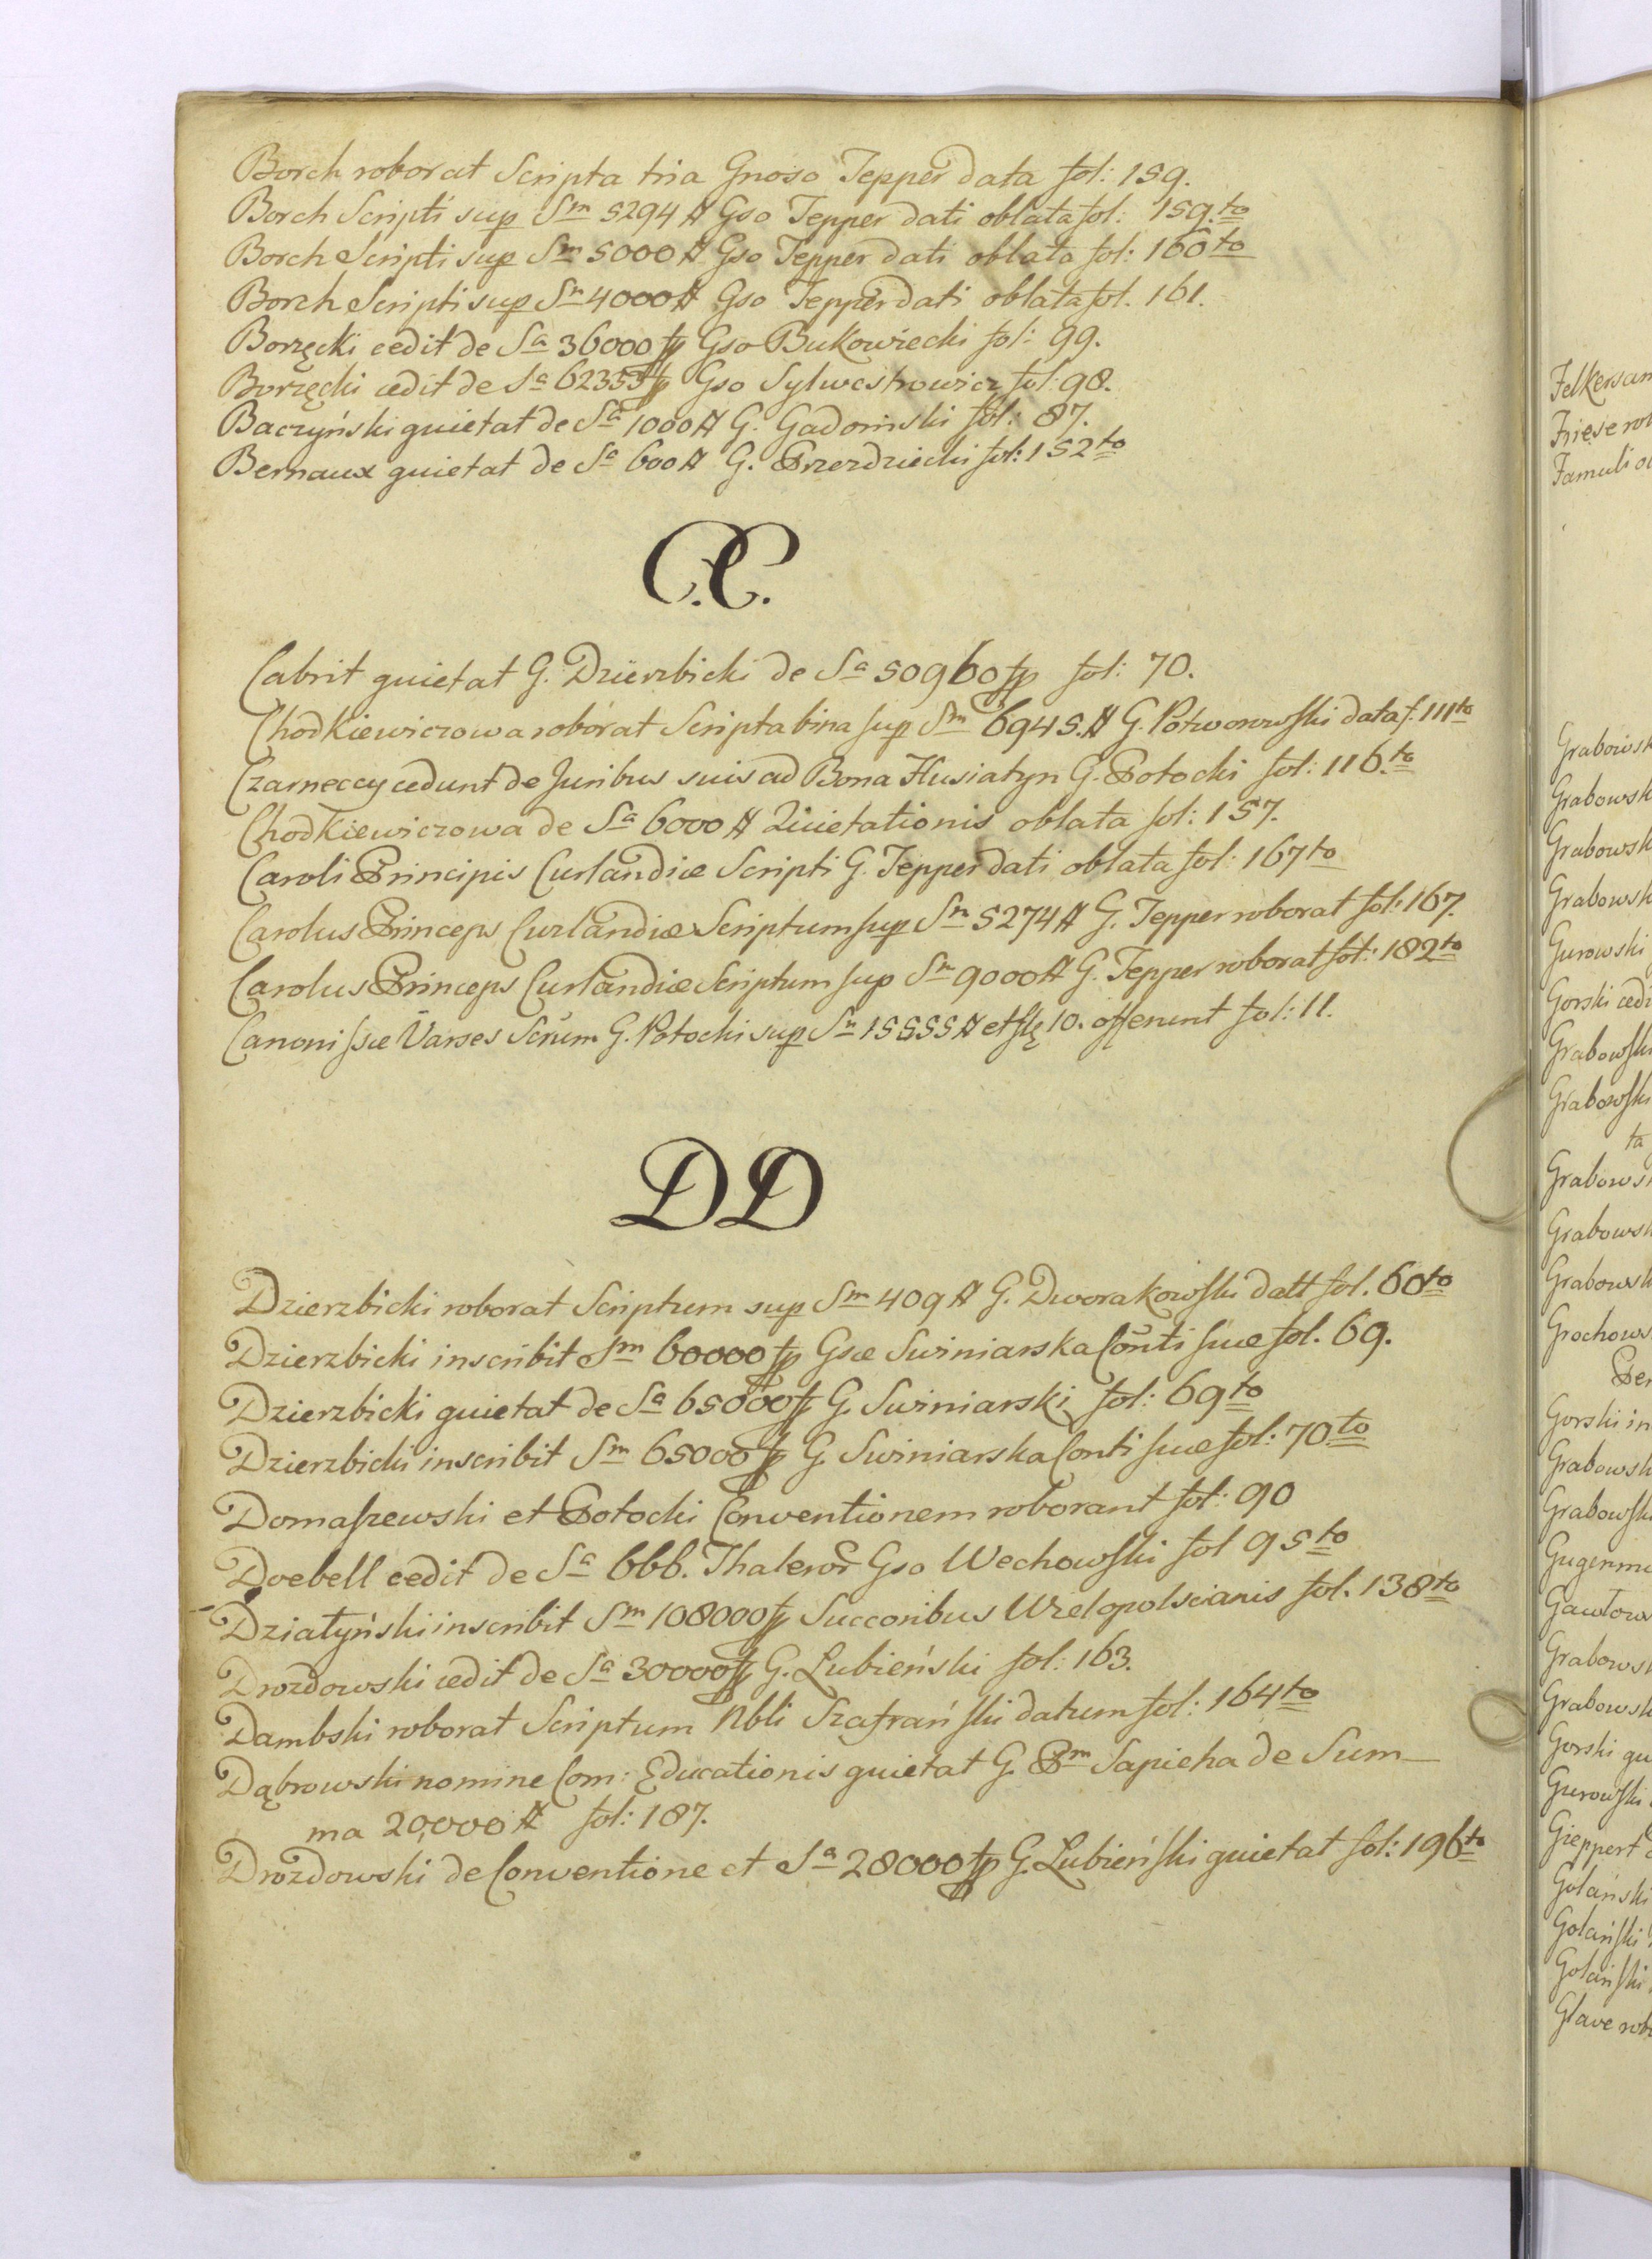 Borch roborat Scripta tria Gnoso Tepper data fol: 159.
Borch Scripti sup Sm 5294 # Gso Tepper dati oblata fol: 159.to
Borch Scripti sup Sm 5000 # Gso Tepper dati oblata fol: 160to
Borch Scripti sup Sm 4000 # Gso Tepper dati oblata fol. 161.
Borzęcki cedit de Sa 36000 fp Gso Bukowiecki fol: 99.
Borzęcki cedit de Sa 62355 fp Gso Sylwestrowicz fol: 98.
Baczyński quietat de Sa 1000 # G. Gadomski fol: 87.
Bernaux quietat de Sa 600 # G. Przezdziecki fol: 152to
C.C.
Cabrit quietat G. Dzierzbicki de Sa 50960 fp fol: 70.
Chodkiewiczowa roborat Scripta bina sup Sm 6945. # G. Potworowski data f. 111to
Czarneccy cedunt de Juribus suis ad Bona Husiatyn G. Potocki fol: 116.to
Chodkiewiczowa de Sa 6000 # Quietationis oblata fol: 157.
Caroli Principis Curlandiæ Scripti G. Tepper dati oblata fol: 167to
Carolus Princeps Curlandiæ Scriptum sup Sm 5274 # G. Tepper roborat fol: 167.
Carolus Princeps Curlandiæ Scriptum sup Sm 9000 # G. Tepper roborat fol: 182to
Canonissæ Varses Scrum G. Potocki sup Sm 15555 # et flę 10. offerunt fol: 11.
DD
Dzierzbicki roborat Scriptum sup Sm 409 # G. Dworakowski datt fol. 60to
Dzierzbicki inscribit Sm 60000 fp Gsæ Swiniarska Conti suæ fol. 69.
Dzierzbicki quietat de Sa 65000 fp G. Swiniarski fol: 69to
Dzierzbicki inscribit Sm 65000 fp G. Swiniarska Conti suæ fol: 70to
Domaszewski et Potocki Conventionem roborant fol: 90
Doebell cedit de Sa 666. Thaleror Gso Wechowski fol 95to
Działyński inscribit Sm 108000 fp Succoribus Wielopolscianis fol. 138to
Drozdowski cedit de Sa 30000 fp G. Lubieński fol: 163.
Dambski roborat Scriptum Nbli Szafrański datum fol: 164to
Dąbrowski nomine Com: Educationis quietat G. Pm Sapieha de Sum-
ma 20,000 # fol: 187.
Drozdowski de Conventione et Sa 28000 fp G. Lubieński quietat fol: 196to